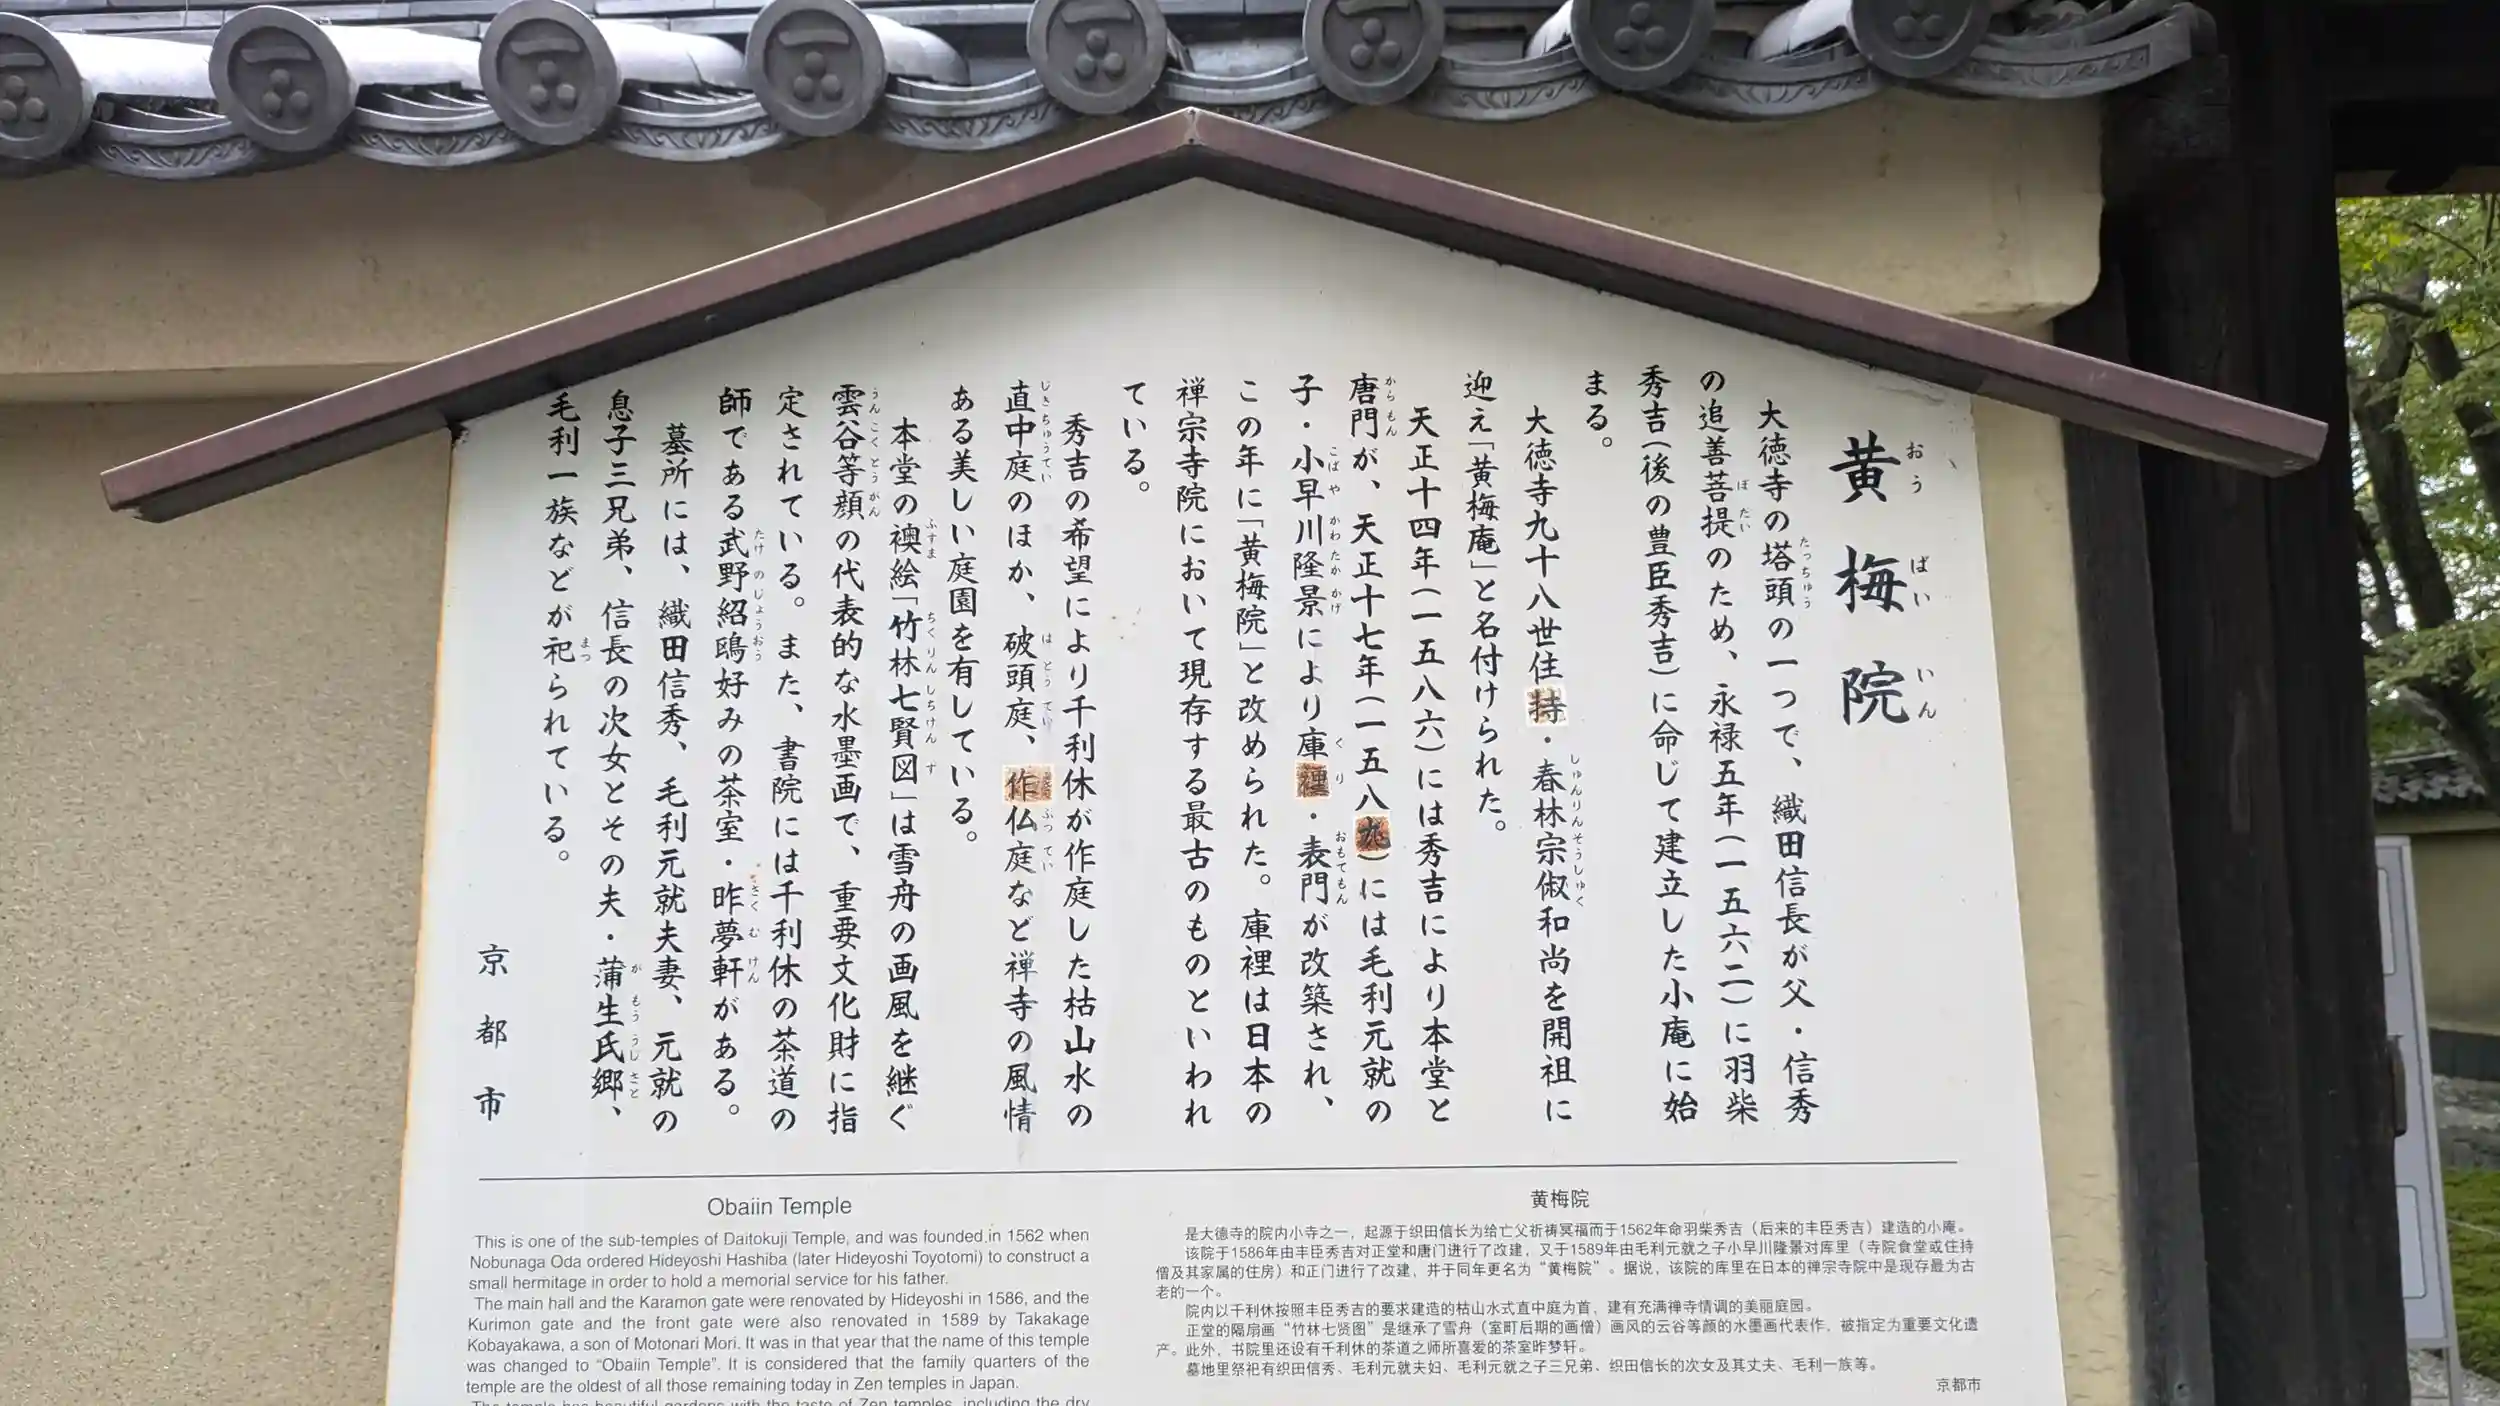 黄梅院
おうばいいん
大徳寺の塔頭の一つで、織田信長が父・信秀
たっちゅう
の追善菩提のため、永禄五年(一五六二)に羽柴
ぼだい
秀吉(後の豊臣秀吉)に命じて建立した小庵に始
まる。
大徳寺九十八世住持・春林宗俶和尚を開祖に
しゅんりんそうしゅく
迎え「黄梅庵」と名付けられた。
天正十四年(一五八六)には秀吉により本堂と
唐門が、天正十七年(一五八九)には毛利元就の
からもん
子・小早川隆景により庫裡・表門が改築され、
こばやかわたかかげ くり おもてもん
この年に「黄梅院」と改められた。庫裡は日本の
禅宗寺院において現存する最古のものといわれ
ている。
秀吉の希望により千利休が作庭した枯山水の
直中庭のほか、破頭庭、作仏庭など禅寺の風情
じきちゅうてい はとうてい ぶつてい
ある美しい庭園を有している。
本堂の襖絵「竹林七賢図」は雪舟の画風を継ぐ
ふすま ちくりんしちけんず
雲谷等顔の代表的な水墨画で、重要文化財に指
うんこくとうがん
定されている。また、書院には千利休の茶道の
師である武野紹鴎好みの茶室・昨夢軒がある。
たけのじょうおう さくむけん
墓所には、織田信秀、毛利元就夫妻、元就の
息子三兄弟、信長の次女とその夫・蒲生氏郷、
がもううじさと
毛利一族などが祀られている。
まつ
京都市
Obaiin Temple
This is one of the sub-temples of Daitokuji Temple, and was founded in 1562 when
Nobunaga Oda ordered Hideyoshi Hashiba (later Hideyoshi Toyotomi) to construct a
small hermitage in order to hold a memorial service for his father.
The main hall and the Karamon gate were renovated by Hideyoshi in 1586, and the
Kurimon gate and the front gate were also renovated in 1589 by Takakage
Kobayakawa, a son of Motonari Mori. It was in that year that the name of this temple
was changed to “Obaiin Temple”. It is considered that the family quarters of the
temple are the oldest of all those remaining today in Zen temples in Japan.
The temple has beautiful gardens with the taste of Zen temples, including the dry
黄梅院
是大德寺的院内小寺之一，起源于织田信长为给亡父祈祷冥福而于1562年命羽柴秀吉（后来的丰臣秀吉）建造的小庵。
该院于1586年由丰臣秀吉对正堂和唐门进行了改建，又于1589年由毛利元就之子小早川隆景对库里（寺院食堂或住持
僧及其家属的住房）和正门进行了改建，并于同年更名为“黄梅院”。据说，该院的库里在日本的禅宗寺院中是现存最为古
老的一个。
院内以千利休按照丰臣秀吉的要求建造的枯山水式直中庭为首，建有充满禅寺情调的美丽庭园。
正堂的隔扇画“竹林七贤图”是继承了雪舟（室町后期的画僧）画风的云谷等颜的水墨画代表作，被指定为重要文化遗
产。此外，书院里还设有千利休的茶道之师所喜爱的茶室昨梦轩。
墓地里祭祀有织田信秀、毛利元就夫妇、毛利元就之子三兄弟、织田信长的次女及其丈夫、毛利一族等。
京都市